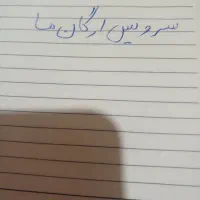 سرویس ارگان ما